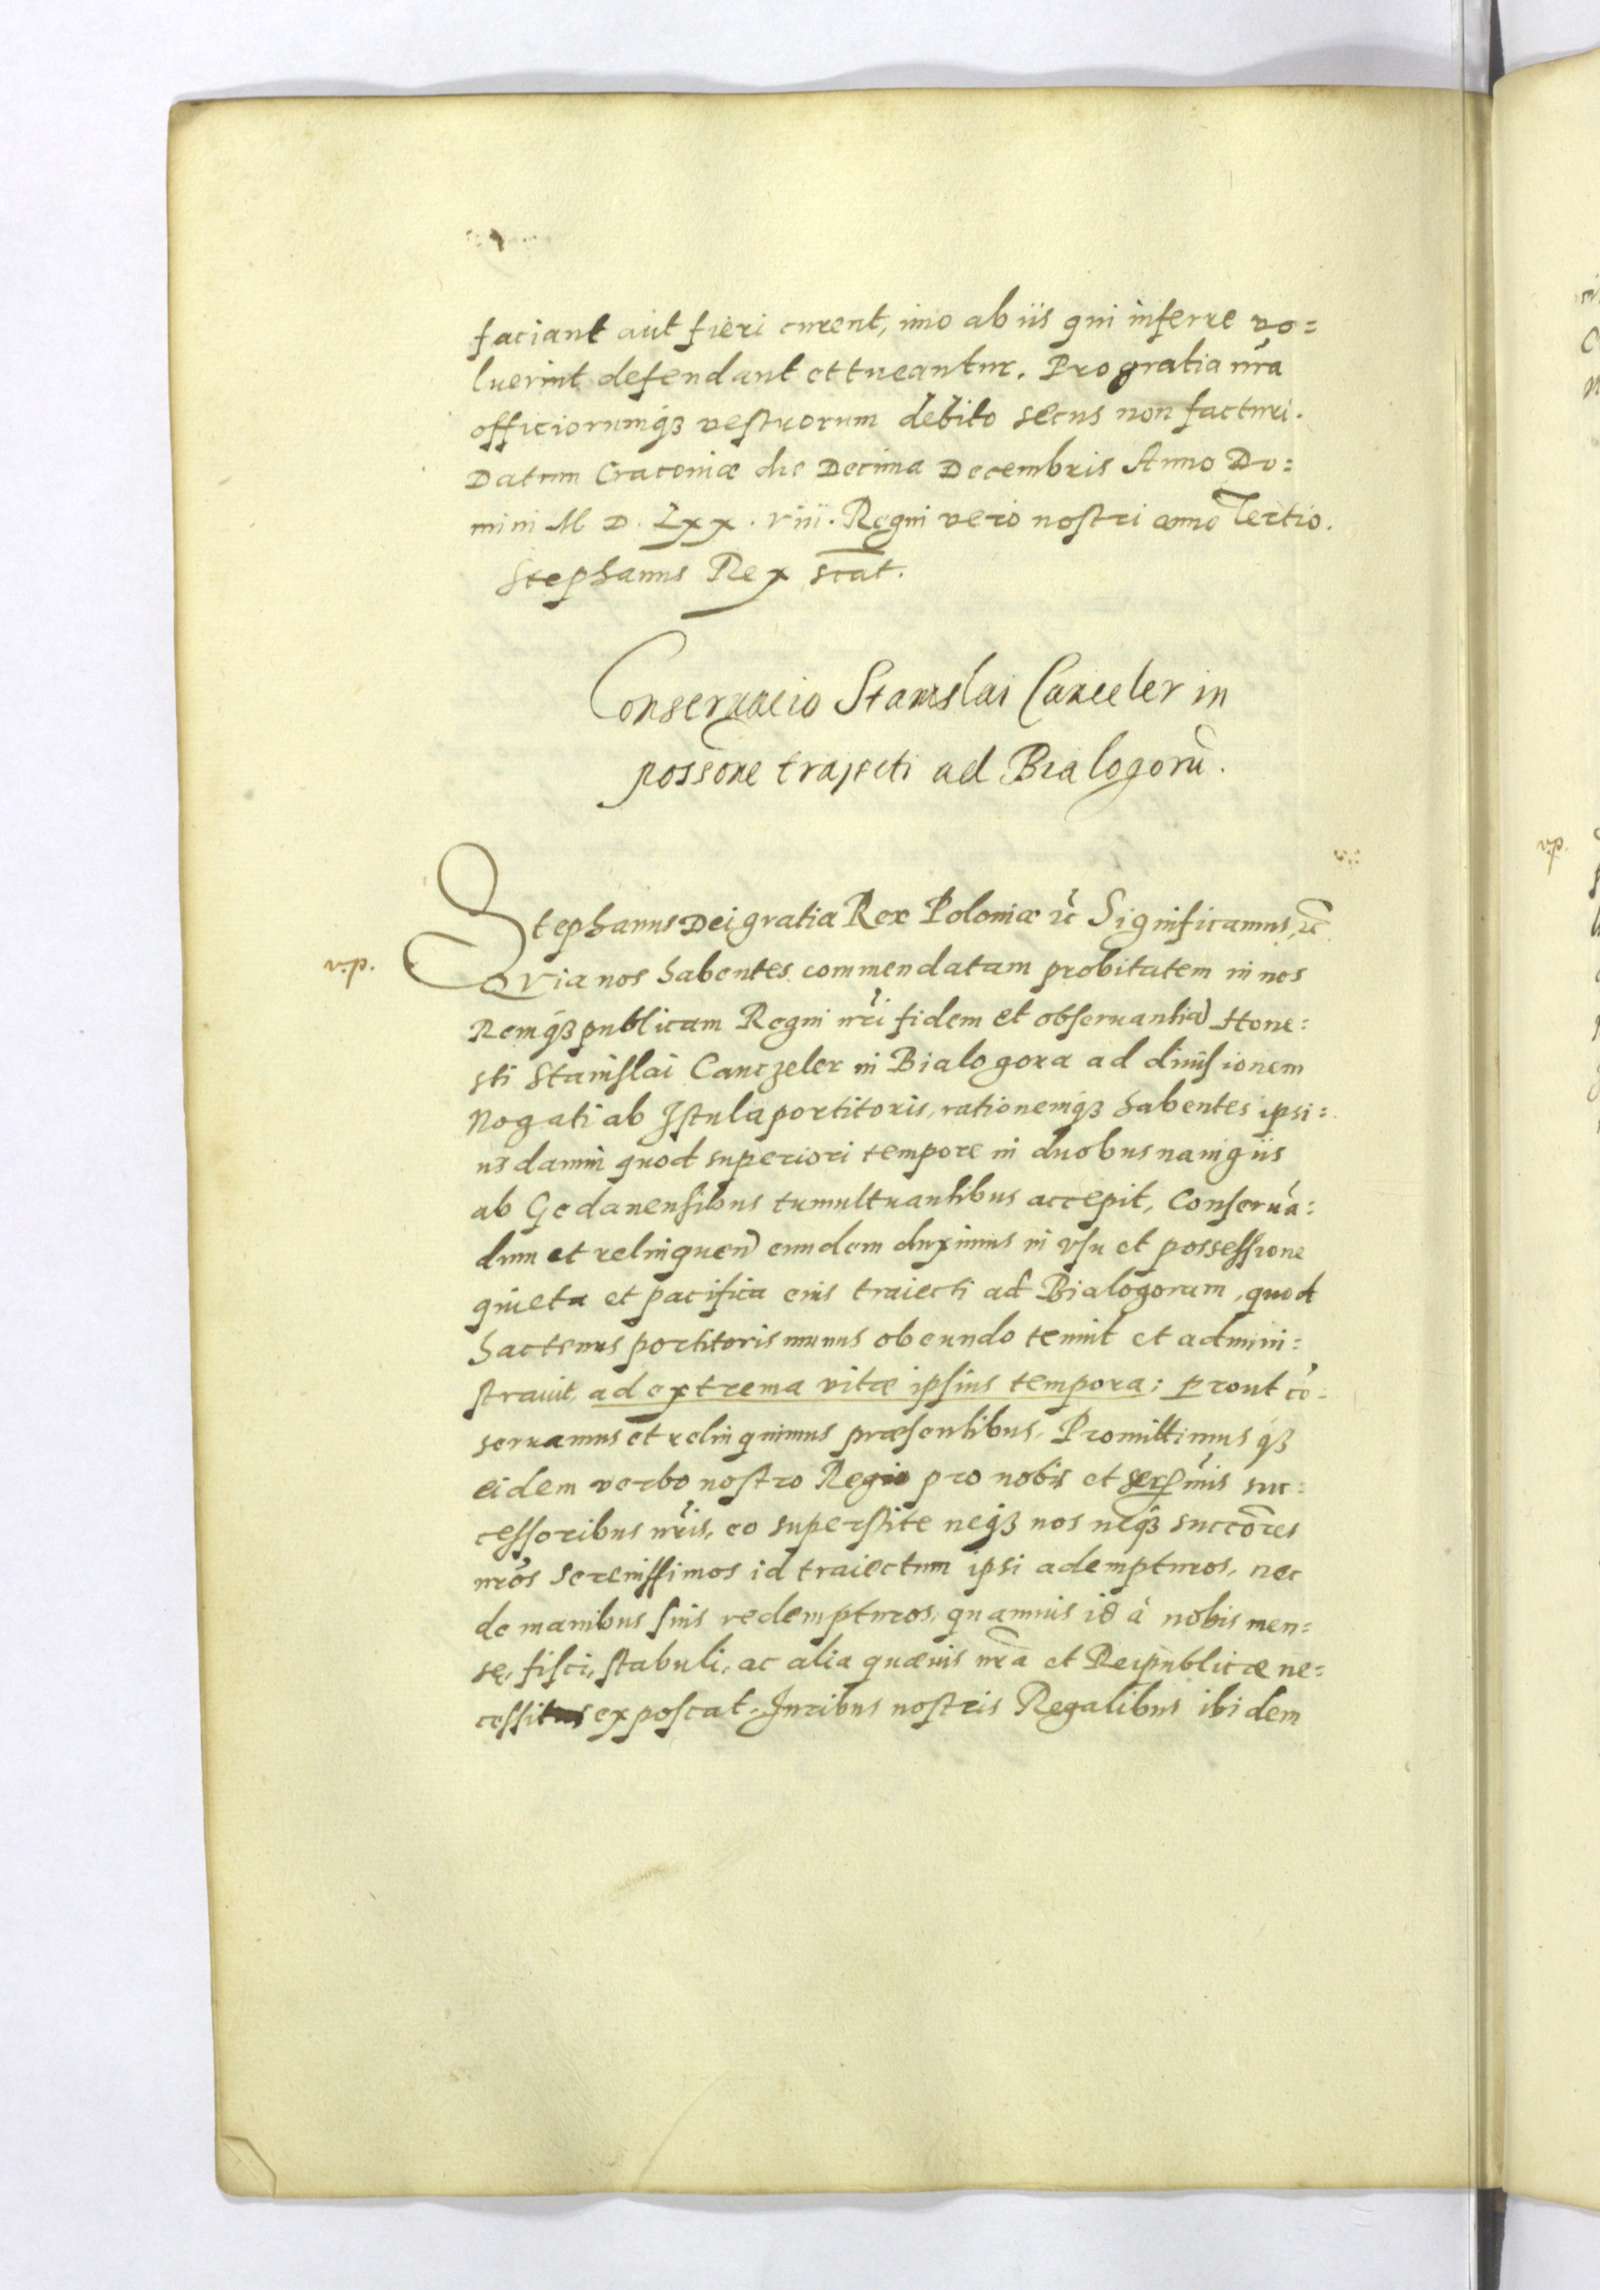 faciant aut fieri curent, imo ab iis qui inferre vo=
luerint defendant et tueantur. Pro gratia nr̃a
officiorumq́ꝫ vestrorum debito secus non facturi.
Datum Cracoviæ die Decima Decembris Anno Do=
mini M D. Lxx. viii. Regni vero nostri anno Tertio.
Stephanus Rex scat.
Conservacio Stanislai Canceler in
possone trajecti ad Bialogorũ.
Stephanus Dei gratia Rex Poloniæ ꝛc Significamus, ꝛc
v.p.
Qvia nos habentes commendatam probitatem in nos
Remq́ꝫ publicam Regni nr̃i fidem et obseruantia) Hone=
sti Stanislai Canczeler in Bialogora ad diuisionem
Nogati ab Istula portitoris, rationemq́ꝫ habentes ipsi=
us damni quod superiori tempore in duobus nauigiis
ab Gedanensibus tumultuantibus accepit, Conseruã=
dum et relinquen) eundem duximus in vsu et possessione
quieta et pacifica eius traiecti ad Bialogoram, quod
hactenus portitoris munus obeundo tenuit et admini=
strauit, ad extrema vitæ ipsius tempora: prout cõ=
seruamus et relinquimus præsentibus. Promittimus q́ꝫ
eidem verbo nostro Regio pro nobis et serp̃mis suc=
cessoribus nr̃is, eo superstite neq́ꝫ nos neq́ꝫ succõres
nrõs Serenissimos id traiectum ipsi adempturos, nec
de manibus suis redempturos, quamuis id à nobis men=
sę, fisci, stabuli, ac alia quæuis nr̃a et Reipublicæ ne=
cessitas exposcat. Iuribus nostris Regalibus ibidem
v.p.